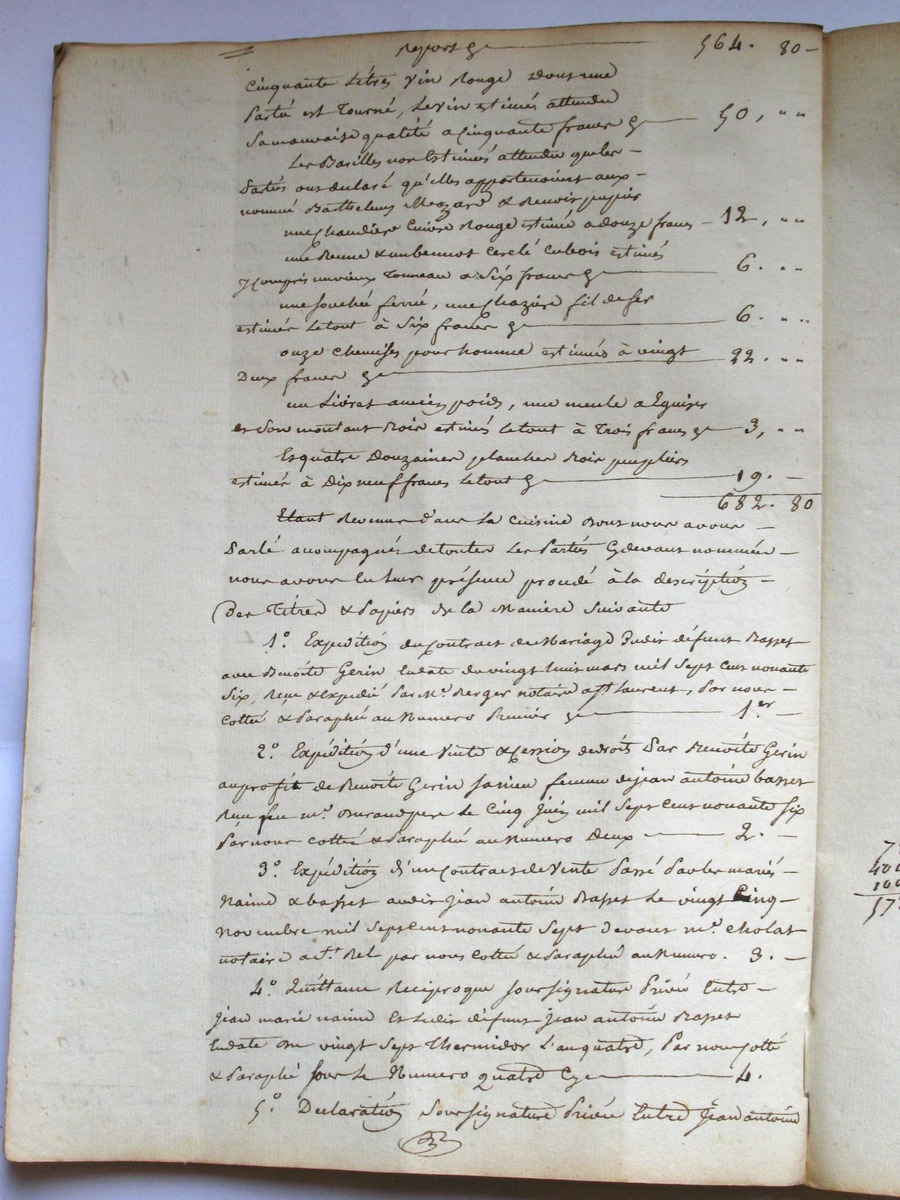 Report 564. 80 -
Cinquante Litres vin Rouge dont une
Partie est Tourné, Le vin estimés attendu
Samauvaise qualité a Cinquante francs 50, " "
Les Barilles non Estimés attendu que les -
Parties ont declaré qu'elles appartenoient aux -
nommé Barthelemy & Benoit
une Chaudiere Cuivre Rouge estimée a douze francs - 12, " "
une Benne & un bennot Cerclé Enbois estimés
y Compris un vieux Tonneau a Six francs 6. " "
une ferré, une fil de fer
estimés Le tout à Six francs 6. " "
onze Chemises pour homme estimés à vingt
Deux francs 22. " "
un Livret ancien poids, une meule a Eguiser
et Son montant Bois estimés Le tout à Trois francs 3, " "
Et quatre Douzaines planches Bois peupliers
estimés à Dix neuf francs Le tout 19. -
682. 80
Etant Revenus dans La Cuisine Dont nous avons -
Parlé acompagnés de toutes Les Parties Cydevant nommées -
nous avons En Leur présence procedé à la description -
Des Titres & Papiers de la Maniere Suivante
1.° Expedition du Contract de Mariage Dudit défunt Basset
avec Benoite Gerin Endate du vingt huit mars mil Sept Cent nonante
Six, Reçu & Expedié Par M.e Berger notaire a St Laurent, Par nous -
Cotté & Paraphé au Numero Premier 1.er -
2.° Expédition d'une Vente & Cession de droits Par Benoite Gerin
au profit de Benoite Gerin Sa niece femme de jean antoine basset
Reçu feu m.e Durand pere Le Cinq Juin mil Sept Cent nonante Six
Par nous Cotté & Paraphé au Numero Deux 2. -
3.° Expédition d'un Contract de Vente Passé Par les mariés -
Naime & basset audit Jean antoine Basset Le vingt Cinq -
Novembre mil Sept Cent nonante Sept devant m.e Cholat
notaire a S.t Bel par nous Cotté & Paraphé au Numero. 3. -
4.° Quittance Reciproque Sous Signature Privée Entre -
Jean marie naime Et Ledit défunt Jean antoine Basset
Endate du vingt Sept Thermidor L'an quatre, Par nous Cotté
& Paraphé Sous Le Numero quatre 4.
5.° Declaration Sous Signature Privée Entre Jean antoine
400
100